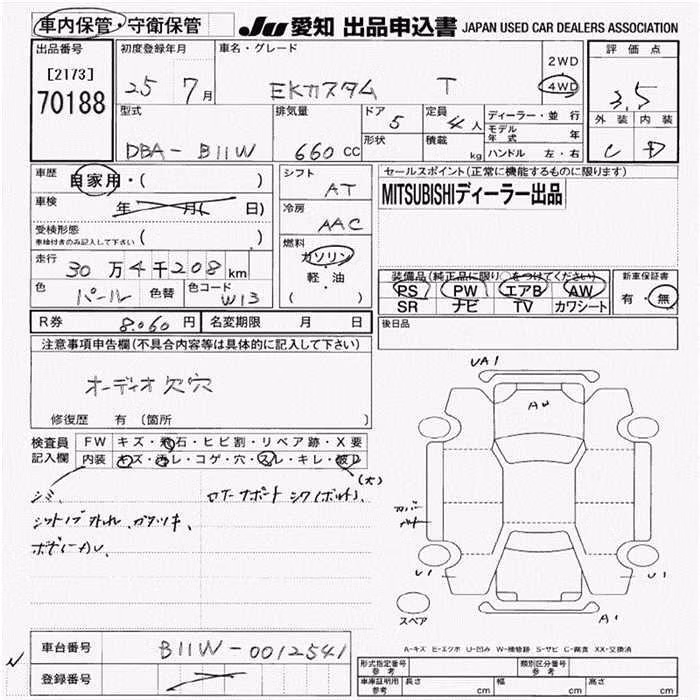 車内保管・守衛保管 JU 愛知 出品申込書 JAPAN USED CAR DEALERS ASSOCIATION
出品番号 初度登録年月 車名・グレード 2WD 評価点
[2173] 25 7月 EKカスタム T 4WD 3.5
70188
型式 排気量 ドア 定員 ディーラー・並行 外装 内装
5 4人 モデル年式 年
DBA-B11W 660cc 形状 積載 kg ハンドル 左・右 C D
車歴 自家用・( ) シフト AT セールスポイント(正常に機能するものに限ります)
車検 年 月( 日) 冷房 AAC MITSUBISHIディーラー出品
受検形態
車検付きのみ記入して下さい ( ) 燃料
走行 30万4千208km ガソリン
軽・油
( )
装備品(純正品に限り○をつけてください) 新車保証書
色 パール 色替 色コード W13 PS PW エアB AW 有・無
SR ナビ TV カワシート
R券 8,060円 名変期限 月 日 後日品
注意事項申告欄(不具合内容等は具体的に記入して下さい)
オーディオ欠穴
修復歴 有(箇所 )
検査員記入欄 FW キズ・飛石・ヒビ割・リペア跡・X要
内装 キズ・汚レ・コゲ・穴・スレ・キレ・破レ
(大)
シミ、
シフトノブ外れ、ガタツキ、
ボディーカレ、
コアサポートシワ(ボルト)、
UA1
AW
カバー
U1
U1
A1
スペア
A-キズ E-エクボ U-凹み W-補修跡 S-サビ C-腐食 XX-交換済
車台番号 B11W-0012541
登録番号
N
形式指定番号 参考 類別区分番号 参考
車庫証明用 参考 長さ cm 幅 cm 高さ cm